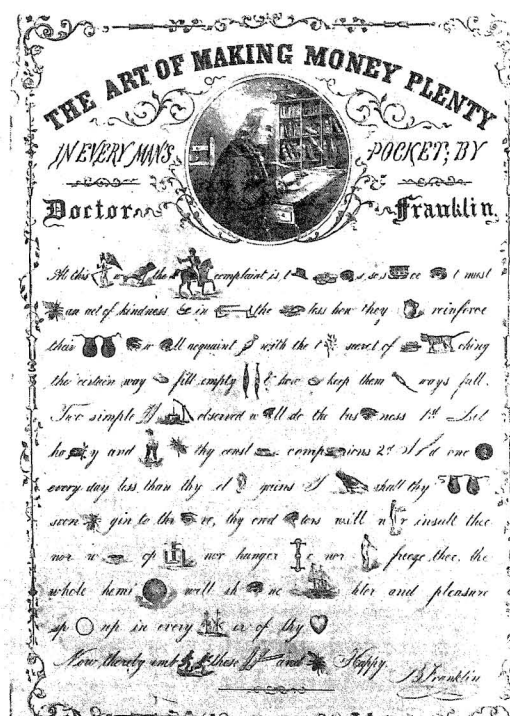 THE ART OF MAKING MONEY PLENTY
IN EVERY MAN'S POCKET; BY
Doctor Franklin.
At this the complaint is, t s, so s ce t must
an act of kindness in the less how they reinforce
their w ll acquaint with the t secret of ching
the certain way fill empty & how keep them ways full.
Two simple observed w ll do the bus ness 1st Let
ho y and thy const comp ions 2d d one
every day less than thy cl gains shall thy
soon gin to th ve, thy cred tors will n r insult thee
nor w op nor hunger e nor freeze thee, the
whole hemi will sh ne hter and pleasure
sp up in every er of thy
Now thereby emb these and Happy.
B Franklin